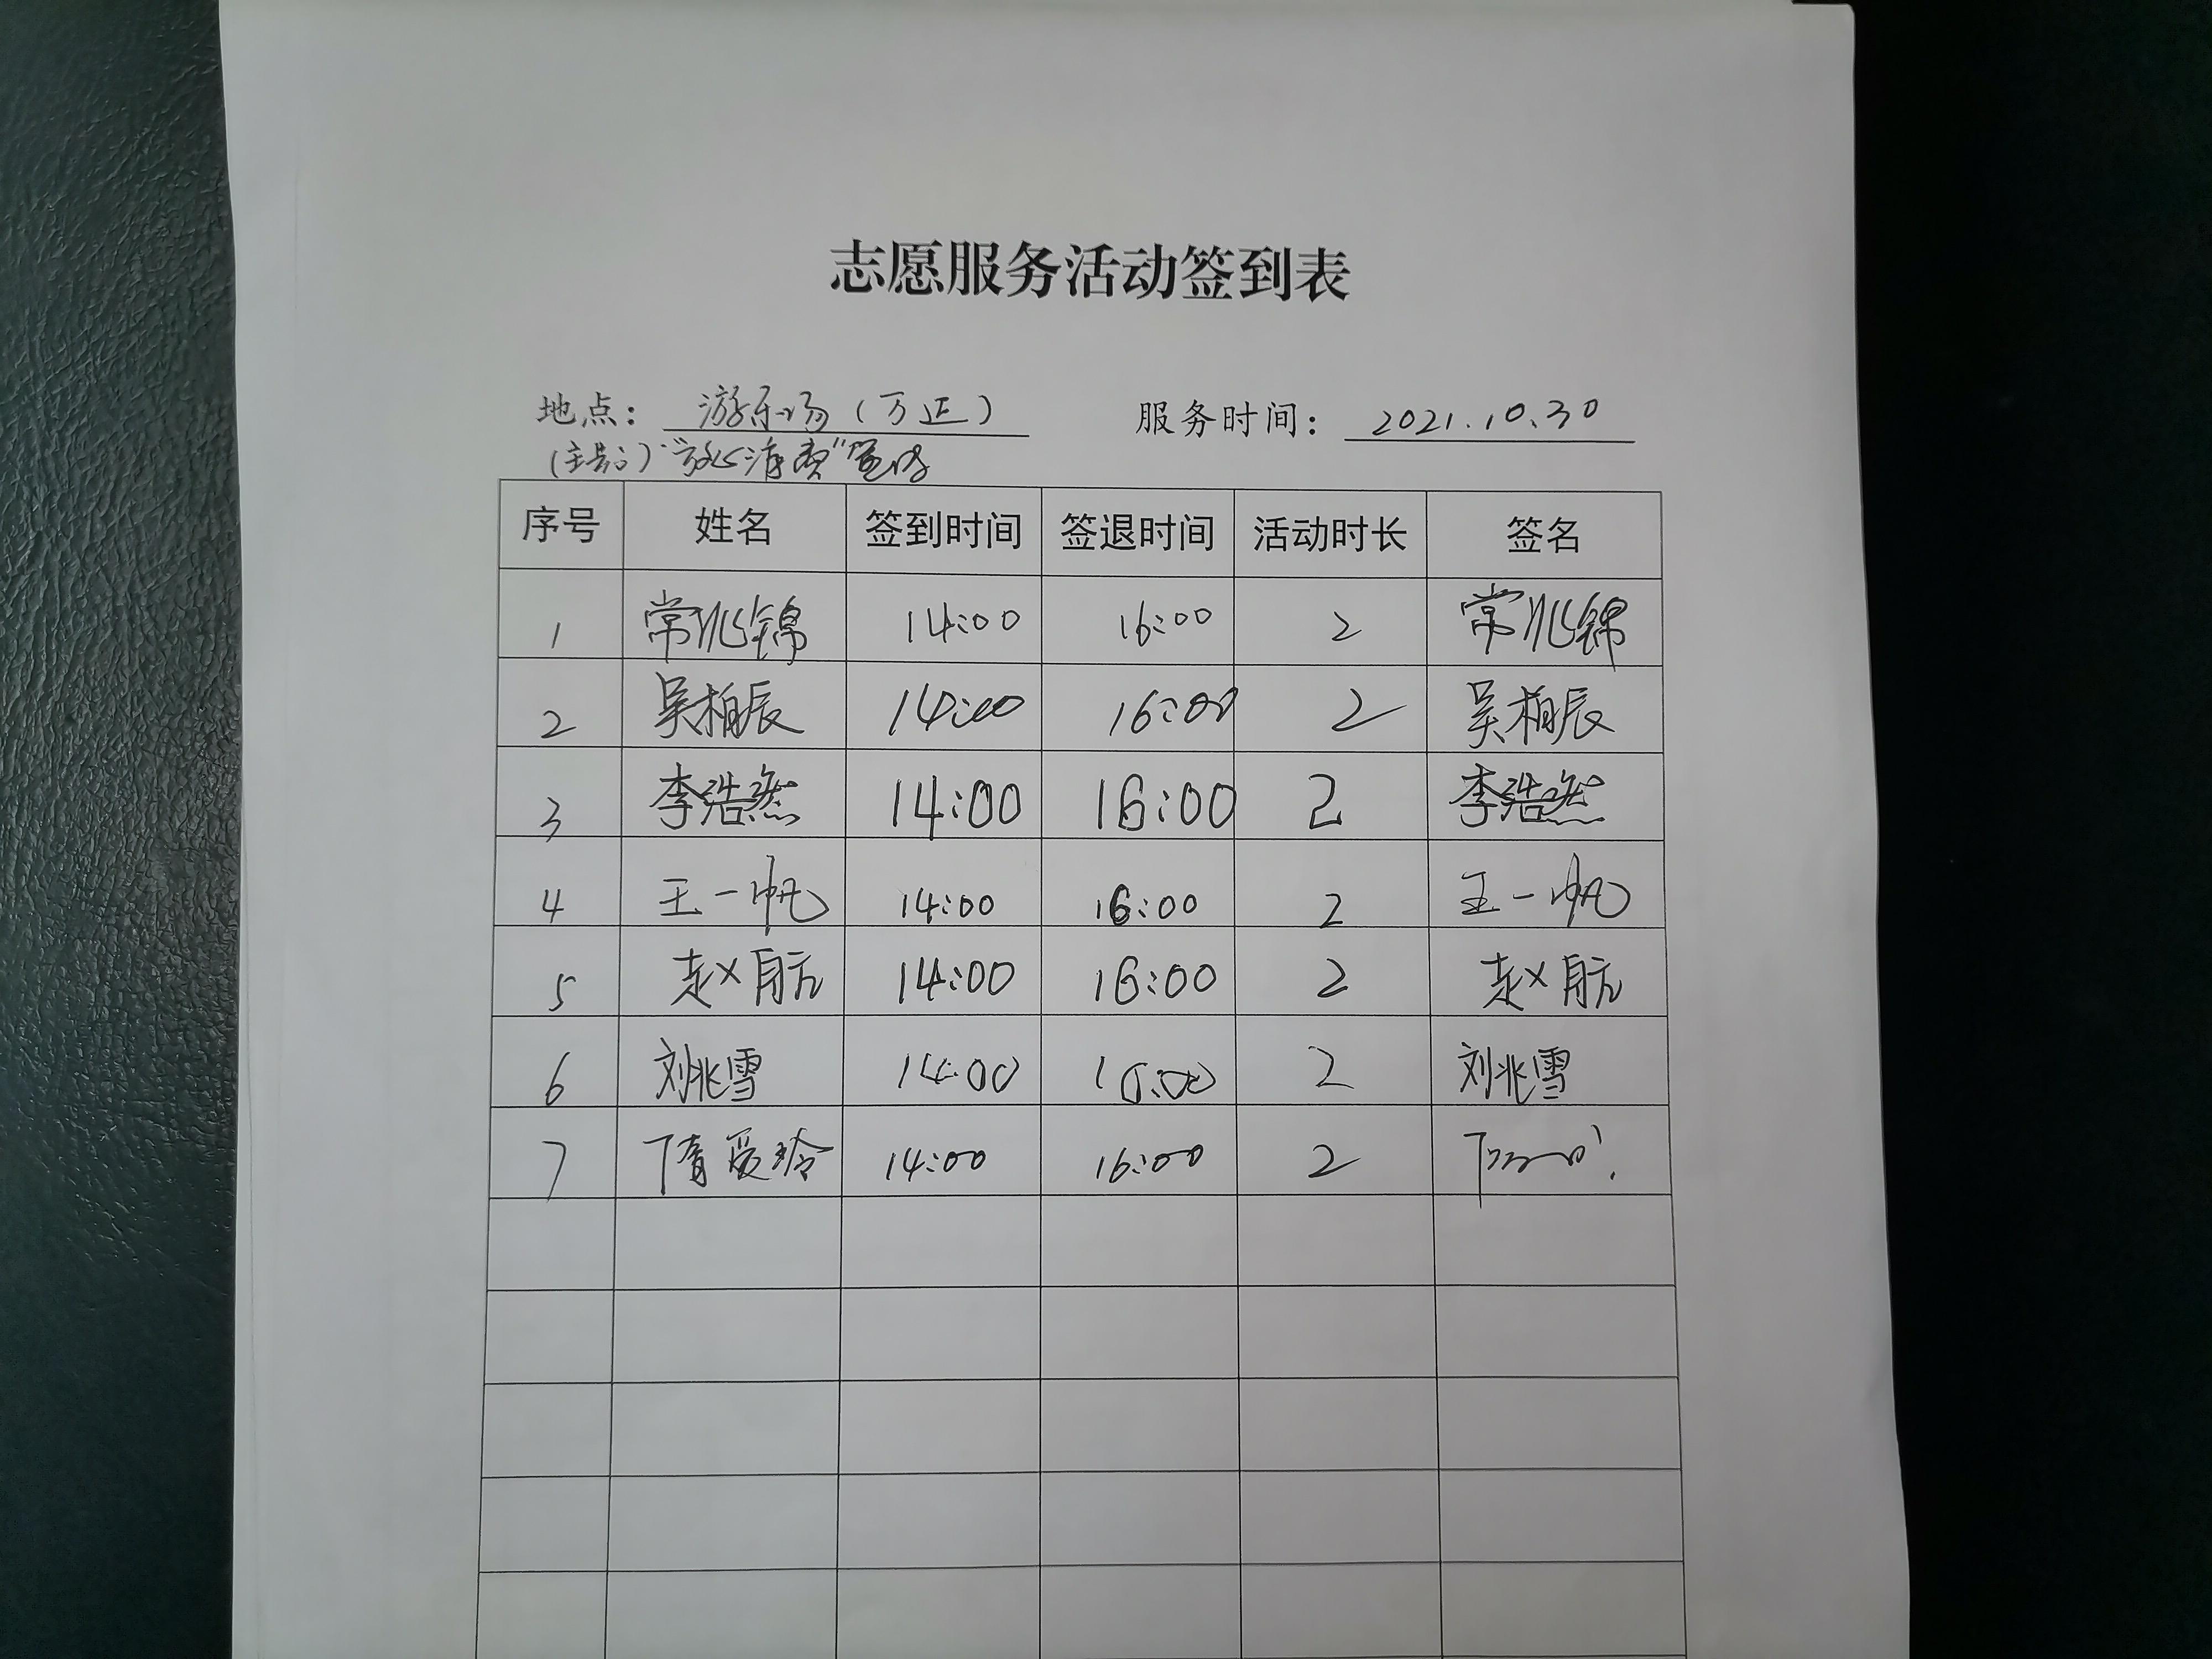 志愿服务活动签到表
地点: 游乐场(万达) 服务时间: 2021.10.30
"放心消费"宣传
序号 姓名 签到时间 签退时间 活动时长 签名
1 常兆锦 14:00 16:00 2 常兆锦
2 吴柏辰 14:00 16:00 2 吴柏辰
3 李浩然 14:00 16:00 2 李浩然
4 王一帆 14:00 16:00 2 王一帆
5 赵航 14:00 16:00 2 赵航
6 刘兆雪 14:00 16:00 2 刘兆雪
7 隋爱玲 14:00 16:00 2